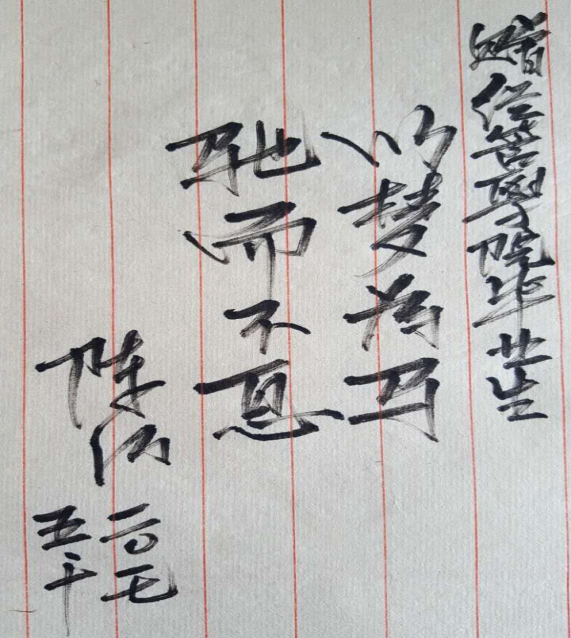 赠经管学院毕业生
以梦为马
驰而不息
陈
二〇一七
五、十